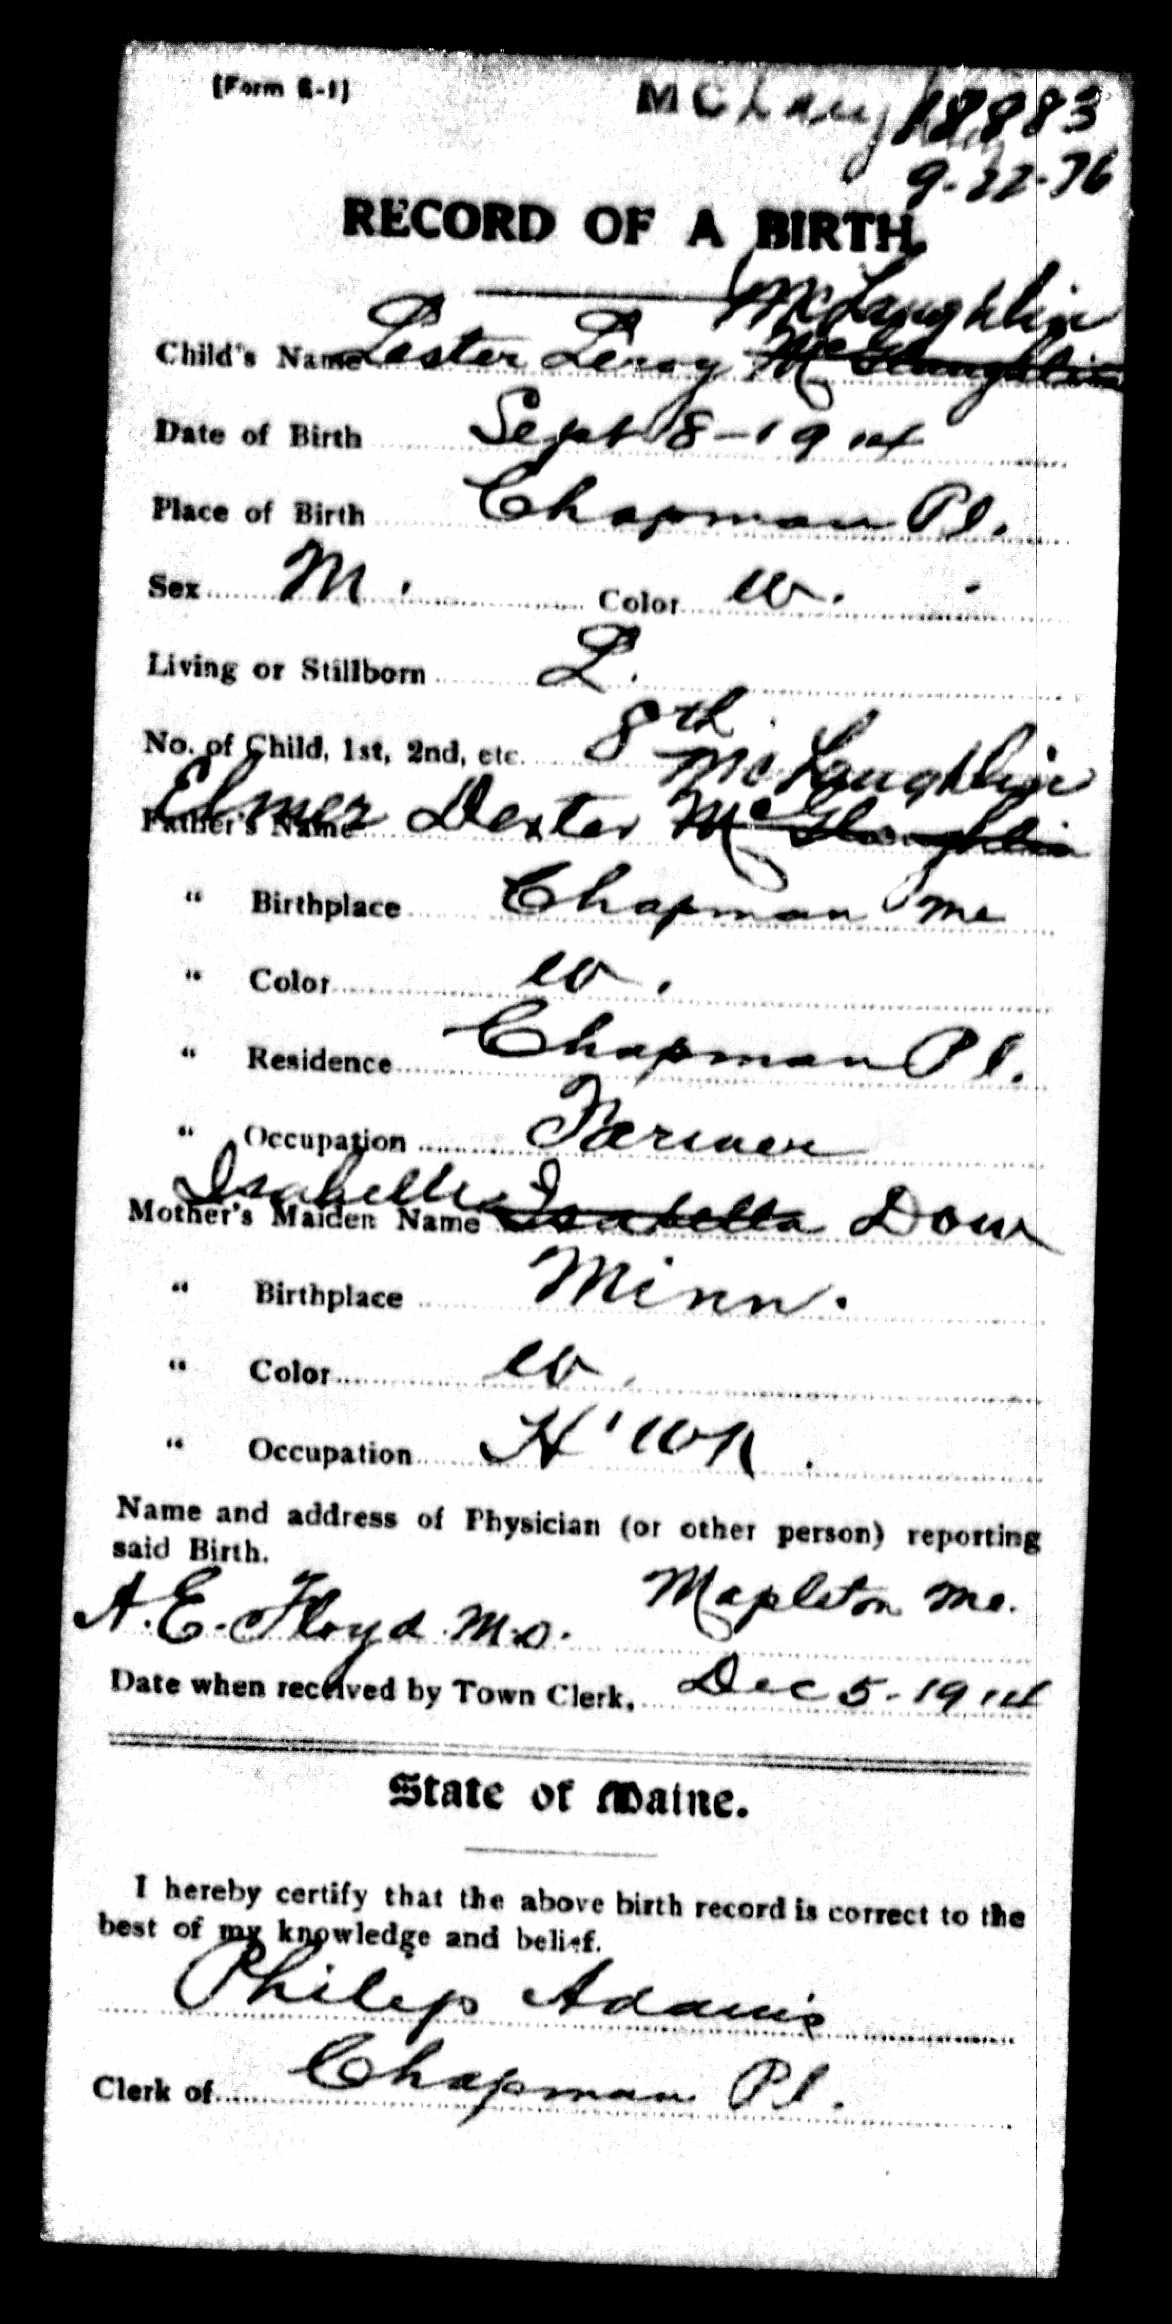 [Form R-1]
McLaughlin 18883
9-22-76
RECORD OF A BIRTH.
McLaughlin
Child's Name Lester Leroy McGlaughlin
Date of Birth Sept 8-1914
Place of Birth Chapman Pl.
Sex M. Color w.
Living or Stillborn L.
No. of Child, 1st, 2nd, etc. 8th
McLaughlin
Father's Name Elmer Dexter McGlaughlin
" Birthplace Chapman Me
" Color w.
" Residence Chapman Pl.
" Occupation Farmer
Isabelle
Mother's Maiden Name Isabella Dow
" Birthplace Minn.
" Color w.
" Occupation H'wk.
Name and address of Physician (or other person) reporting
said Birth.
A. E. Floyd M.D. Mapleton Me.
Date when received by Town Clerk, Dec 5-1914
State of Maine.
I hereby certify that the above birth record is correct to the
best of my knowledge and belief.
Philip Adams
Clerk of Chapman Pl.